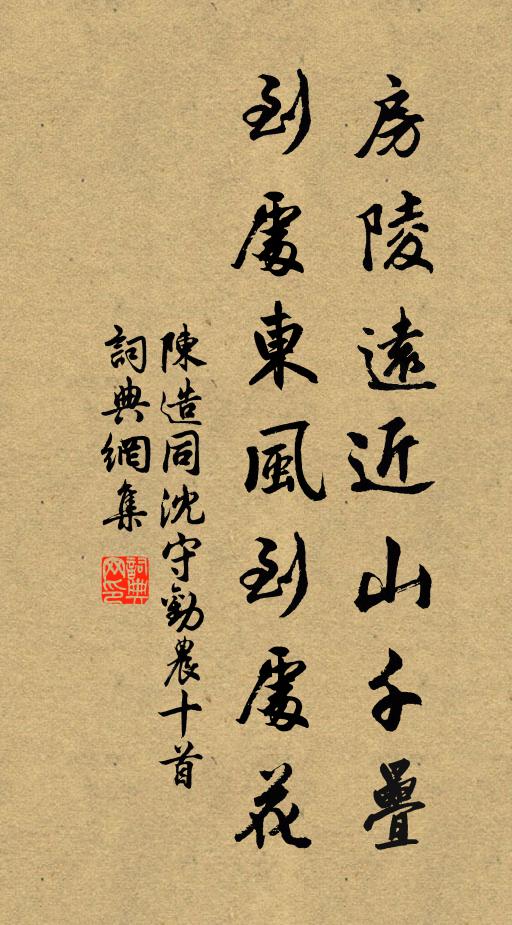 房陵遠近山千疊
到處東風到處花
陳造同沈守勸農十首
詞典網集
詞典網印